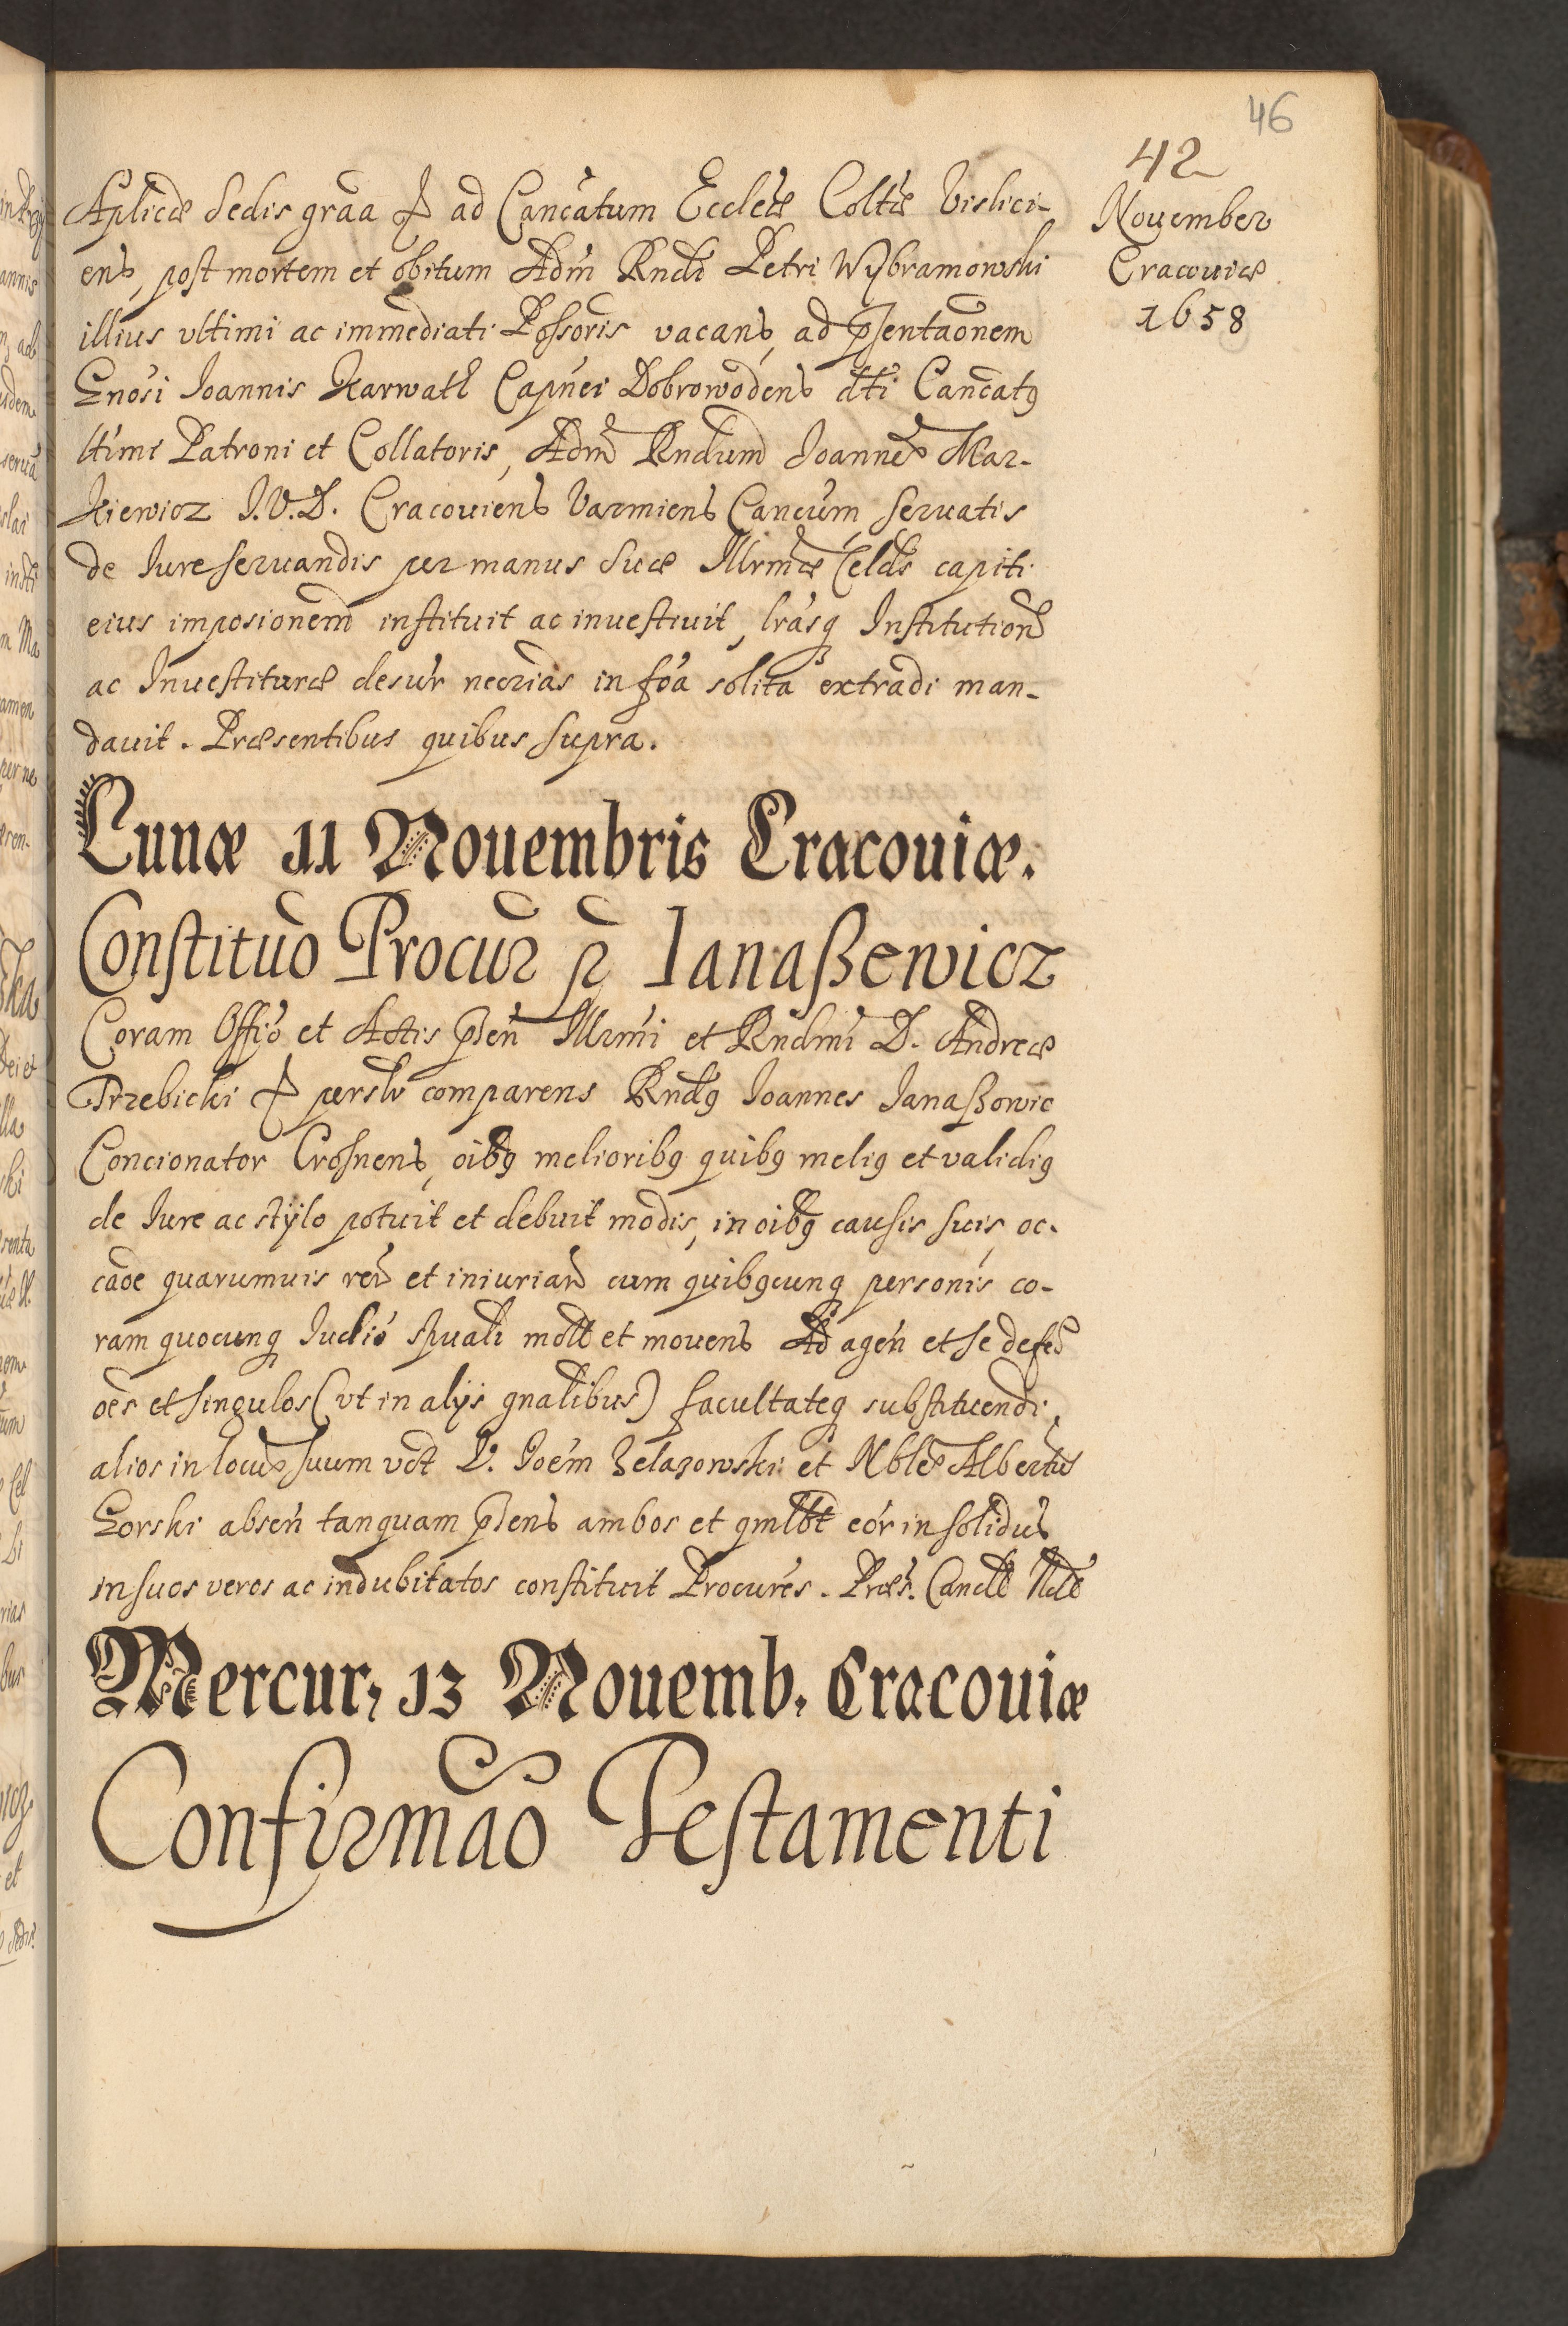 46
42
November
Cracoviæ
1658
Aplicæ Sedis graa & ad Cancatum Eccleiæ Coltæ Vislici-
ens, post mortem et obitum Adm Rndi Petri Wybramowski
illius vltimi ac immediati Possoris vacans, ad pñsentaonem
Gnosi Ioannis Karwath Capnei Dobrowodens dti Cancatq
ltimi Patroni et Collatoris, Adm Rndum Joannem Mar-
kiewicz I.V.D. Cracouiens Varmiens Cancum seruatis
de Iure seruandis per manus Suæ Illrmæ Celdis capiti
eius imposionem instituit ac inuestiuit, lrasq Institutionis
ac Inuestituræ desur necrias in foa solita extradi man-
dauit. Præsentibus quibus supra.
Lunæ 11 Nouembris Cracouiæ.
Constituo Procur p Ianaßewicz
Coram Offio et Actis pñsen Illrmi et Rndmi D. Andreæ
Trzebicki & perslr comparens Rndq Joannes Janaßowic
Concionator Crosnens, oibq melioribq quibq meliq et validiq
de Iure ac stylo potuit et debuit modis, in oibq causis suis, oc-
caoe quarumuis rer et iniuriar cum quibqcunq personis co-
ram quocunq Iudio spuali mot et mouens Ad agen et se defen
oes et singulos (vt in alijs gnalibus) facultateq substituendi
alios in locum suum vdt V. Joem Zelazowski et Nblem Albertum
Gorski absen tanquam pñsens ambos et qmlbt eor in solidum
in suos veros ac indubitatos constituit Procures. Præs. Cancell Note
Mercur, 13 Nouemb. Cracouiæ
Confirmao Testamenti